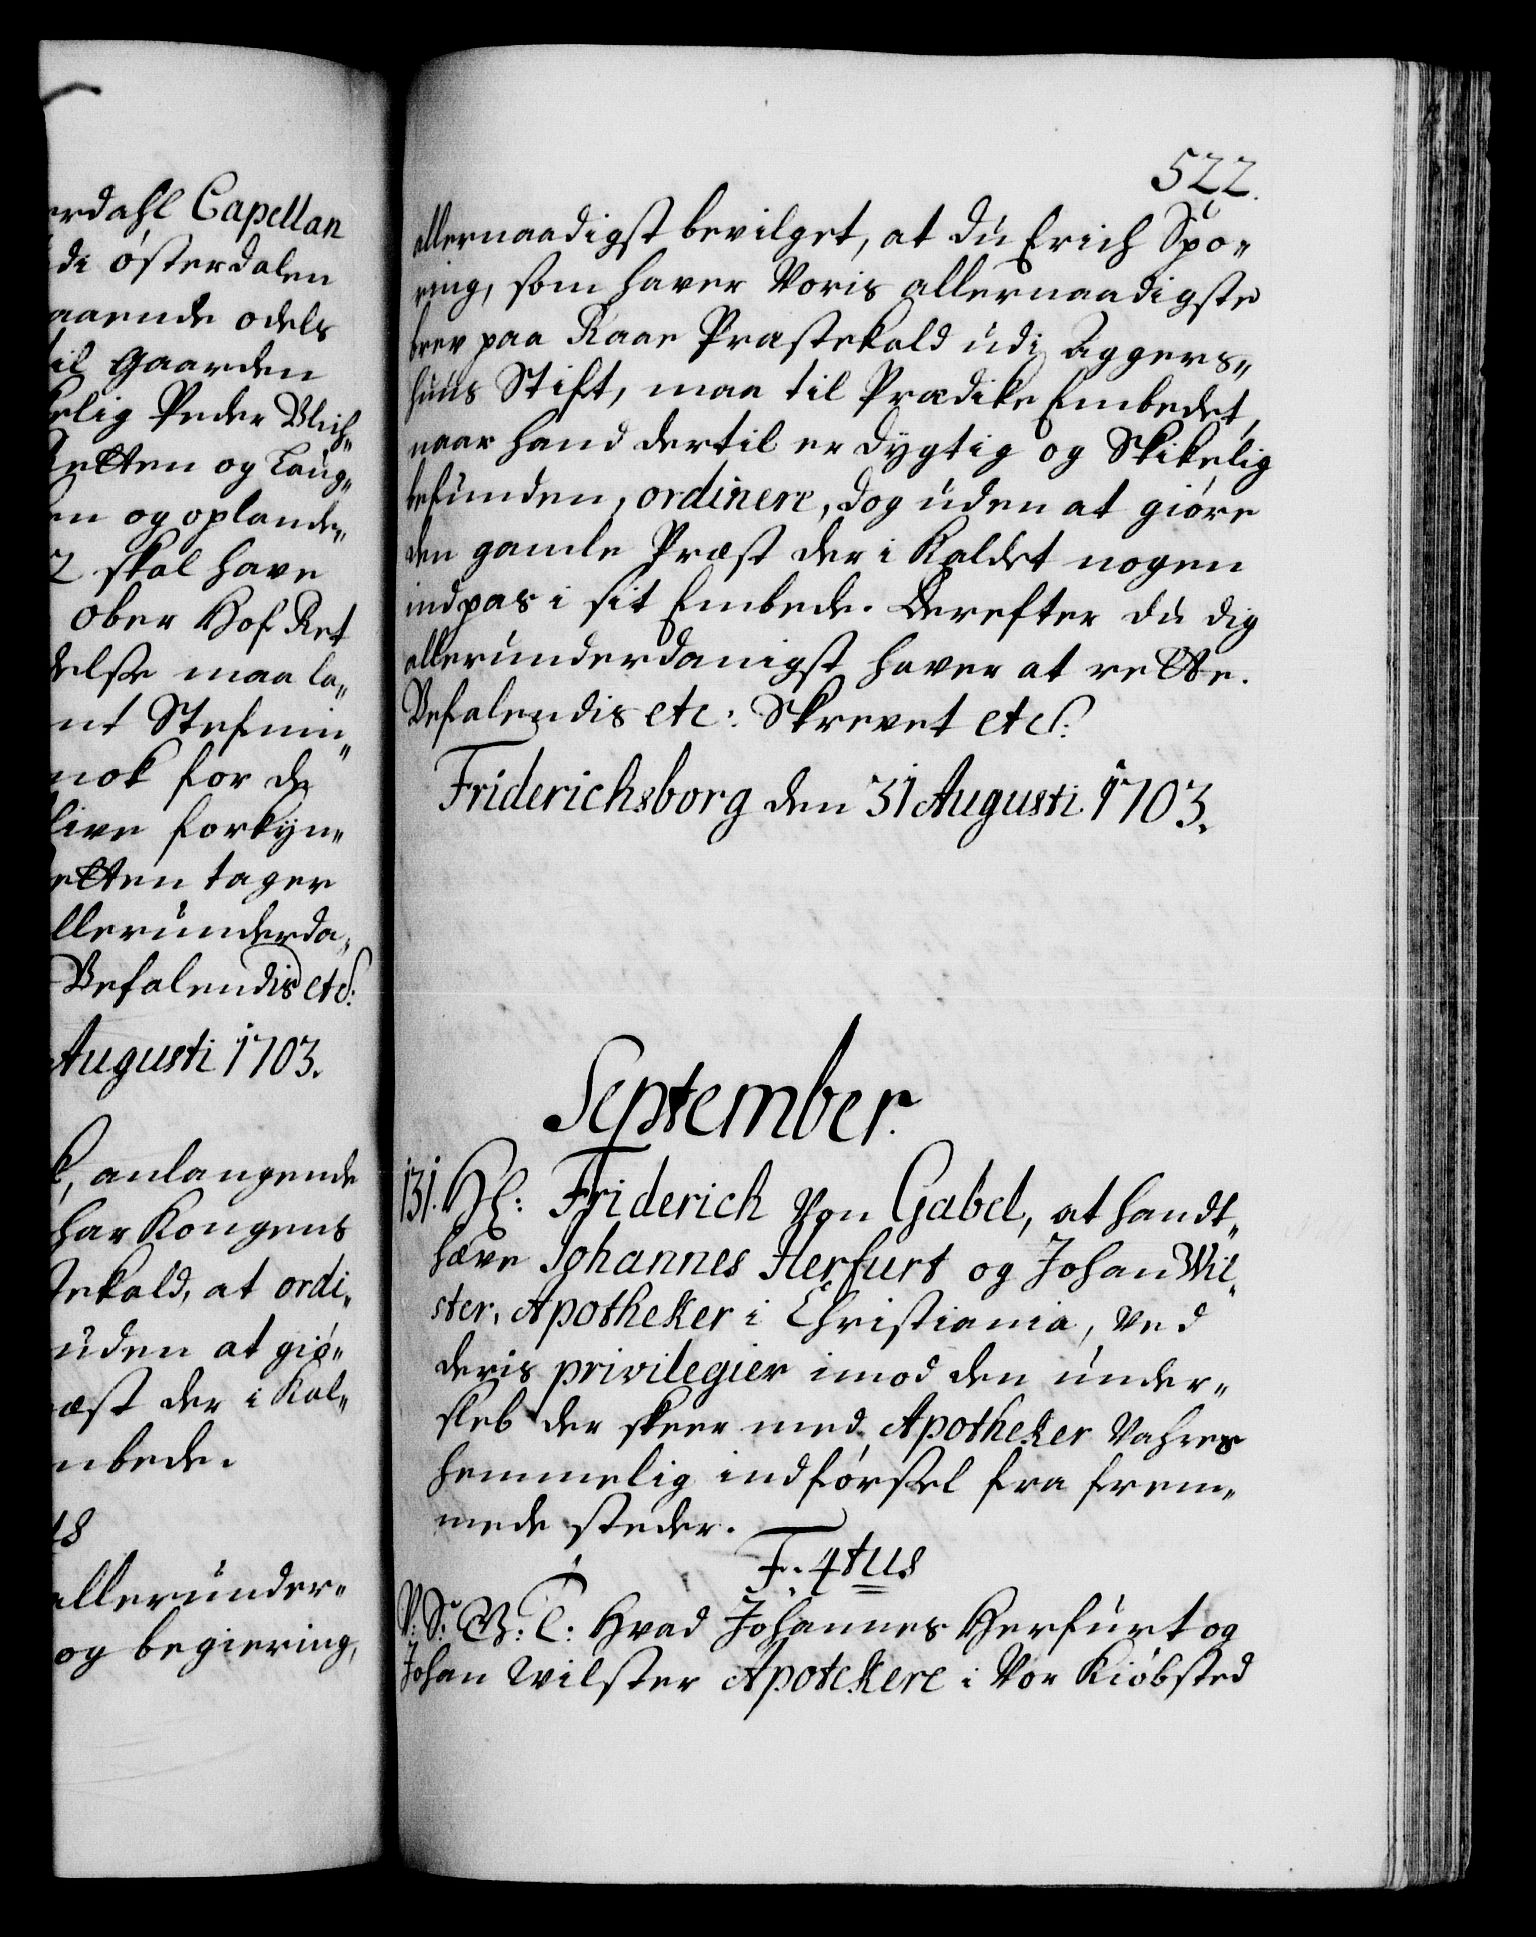 erdahl Capellan
di österdalen
aaende odels
til Gaarden
elig Peder Blich„
Retten og Laug„
en og oplande„
2 skal have
ober Hof Ret
delse maa la„
nt Stefnin„
nok for de
live forkyn„
etten tager
llerunderda„
Befalendis etc:
Augusti 1703.
anlangende
har Kongens
tekald, at ordi„
uden at giö„
æst der i Kal„
mbede.
allerunder„
og begiering,
522.
allernaadigst bevilget, at du Erich Spö„
ring, som haver Voris allernaadigste
brev paa Raae Præstekald udi Aggers„
huus Stift, maa til Prædike Embedet,
naar hand dertil er dygtig og Skikelig
befunden, ordinere, dog uden at giöre
den gamle Præst der i Kaldet nogen
indpas i sit Embede. Derefter du dig
allerunderdanigst haver at rette.
Befalendis etc: Skrevet etc:
Friderichsborg den 31 Augusti 1703.
September.
131. Hr: Friderich von Gabel, at handt„
hæve Johannes Herfurt og Johan Wil„
ster, Apotheker i Christiania, ved
deris privilegier imod den under„
sleb der skeer med Apotheker Vahres
hemmelig indförsel fra frem„
mede steder.
F. 4tus
V: S: G: T: Hvad Johannes Herfurt og
Johan Wilster Apotekere i Vor Kiöbsted